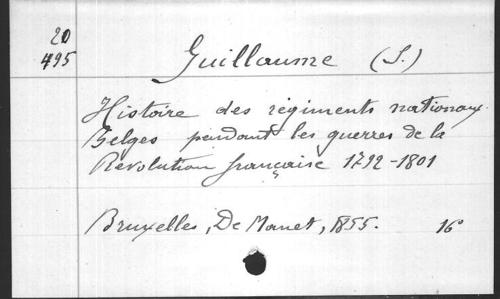 20
495
Guillaume (S.)
Histoire des régiments nationaux
Belges pendant les guerres de la
Révolution française 1792-1801
Bruxelles, De Manet, 1855. 16°